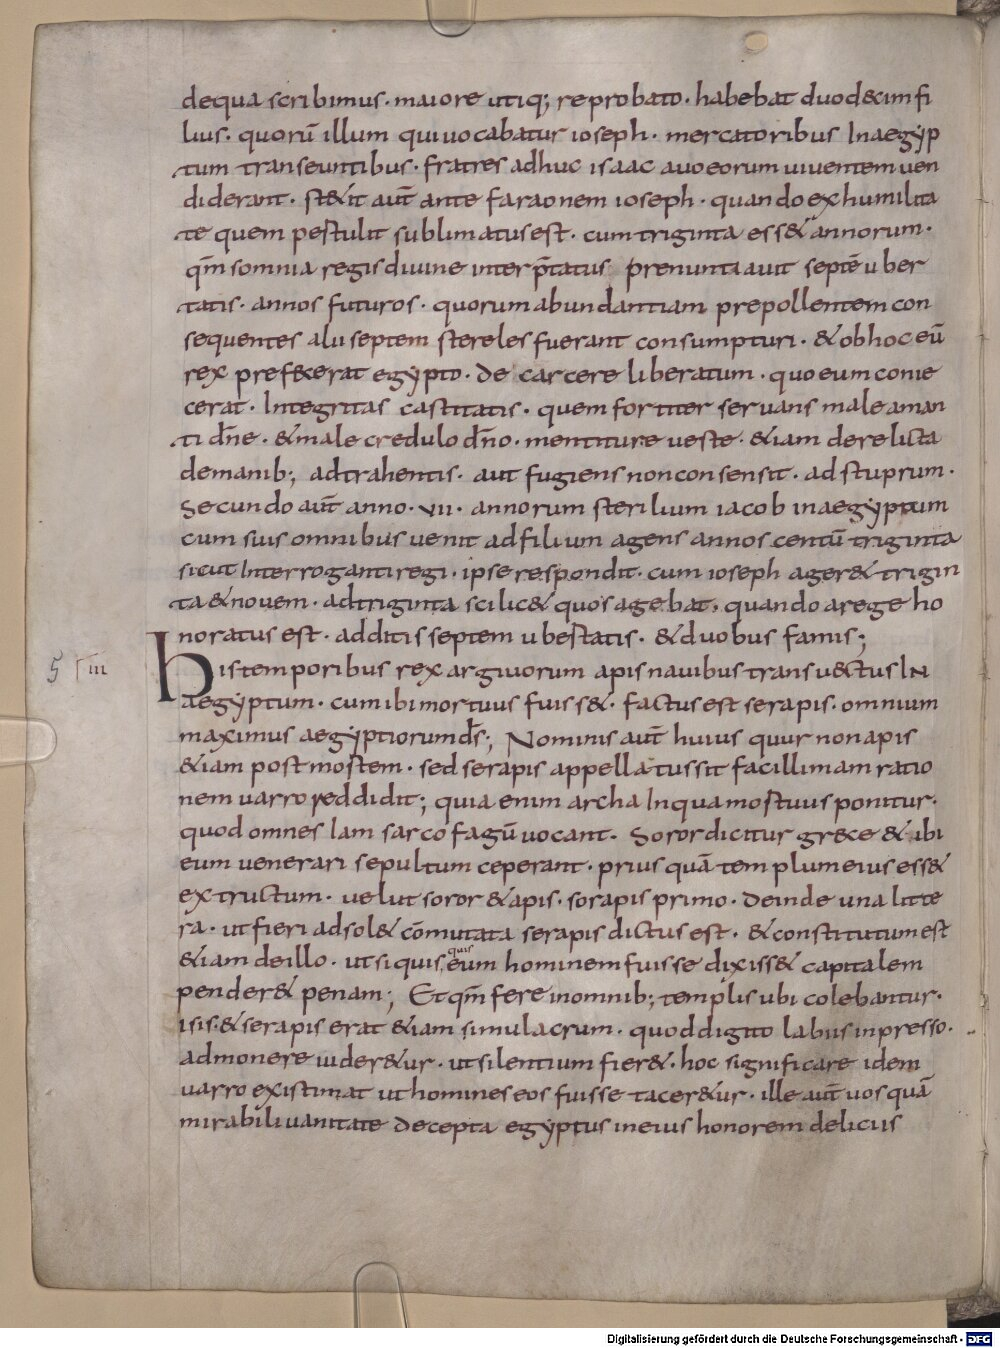 dequa scribimus · maiore utiq; reprobato · habebat duod&cim fi
lius · quorū illum qui uocabatur ioseph · mercatoribus Inaegyp
tum transeuntibus · fratres adhuc isaac auo eorum uiuentem uen
diderant · st&it aūt ante faraonem ioseph · quando ex humilita
te quem pestulit sublimatus est · cum triginta ess& annorum ·
qm̄ somnia regis diuine interp̄tatus prenuntiauit septē uber
tatis · annos futuros · quorum abundantiam prepollentem con
sequentes alii septem stereles fuerant consumpturi · & ob hoc eū
rex pref&cerat egypto · de carcere liberatum · quo eum conie
cerat · Integritas castitatis · quem fortiter seruans male aman
ti dn̄e · & male credulo dn̄o · mentiture ueste · & iam derelicta
demanib; adtrahentis · aut fugiens non consensit · ad stuprum ·
Secundo aūt anno · VII · annorum sterilium iacob in aegyptum
cum suis omnibus uenit ad filium agens annos centū triginta
sicut Interroganti regi · ipse respondit · cum ioseph ager& trigin
ta & nouem · ad triginta scilic& quos agebat, quando a rege ho
noratus est · additis septem ubestatis · & duobus famis;
5 iii
His temporibus rex argiuorum apis nauibus transu&ctus IN
aegyptum · cum ibi mortuus fuiss& · factus est serapis · omnium
maximus aegyptiorum ds̄; Nominis aūt huius quur non apis
&iam post mostem · sed serapis appellatus sit facillimam ratio
nem uarro reddidit; quia enim archa Inqua mostuus ponitur ·
quod omnes Iam sarcofagū uocant · Soror dicitur gr&ce & ibi
eum uenerari sepultum ceperant · prius quā templum eius ess&
extructum · uelut soror & apis · sorapis primo · deinde una litte
ra · ut fieri adsol& cōmutata serapis dictus est · & constitutum est
&iam de illo · ut siquis quis eum hominem fuisse dixiss& capitalem
pender& penam; Et qm̄ fere in omnib; templis ubi colebantur ·
isis · & serapis erat &iam simulacrum · quod digito labiis inpresso ·
admonere uider&ur · ut silentium fier& · hoc significare idem
uarro existimat ut homines eos fuisse tacer&ur · ille aūt uos quā
mirabili uanitate decepta egyptus in eius honorem deliciis
Digitalisierung gefördert durch die Deutsche Forschungsgemeinschaft - DFG